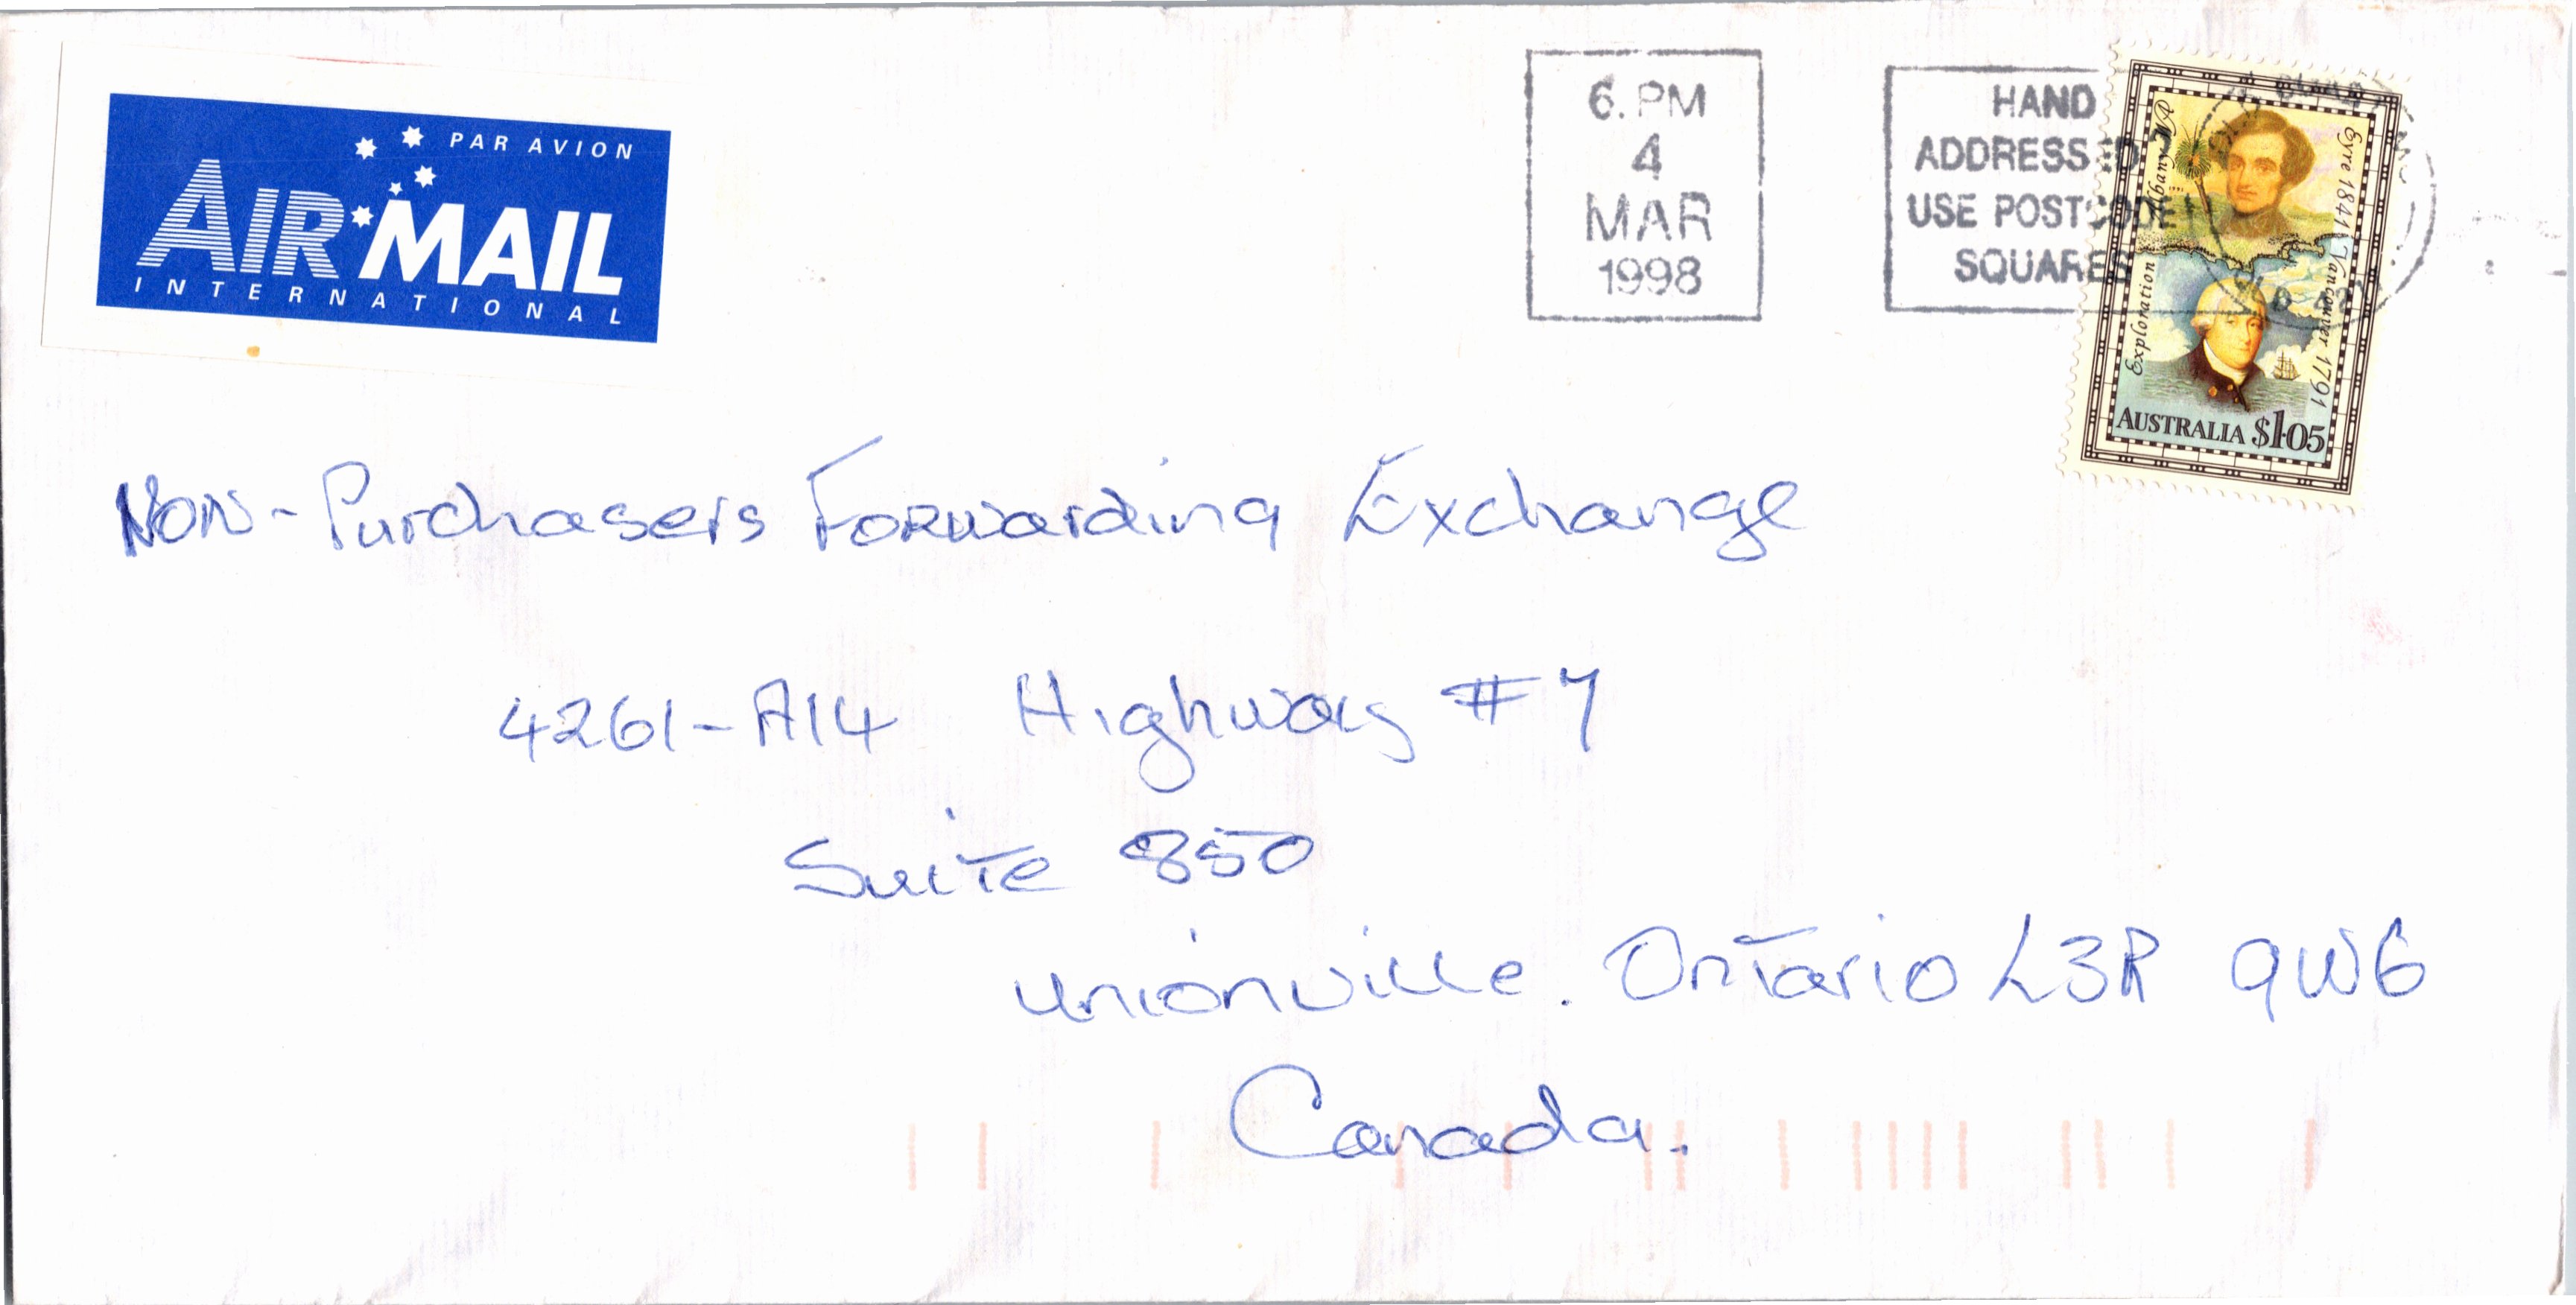 PAR AVION
AIR MAIL
INTERNATIONAL
6. PM
4
MAR
1998
HAND
ADDRESSED?
USE POSTCODE
SQUARES
Exploration Albany WA
Eyre 1841 Vancouver 1791
AUSTRALIA $1.05
Non-Purchasers Forwarding Exchange
4261-A14 Highway #7
Suite 850
Unionville. Ontario L3R 9W6
Canada.